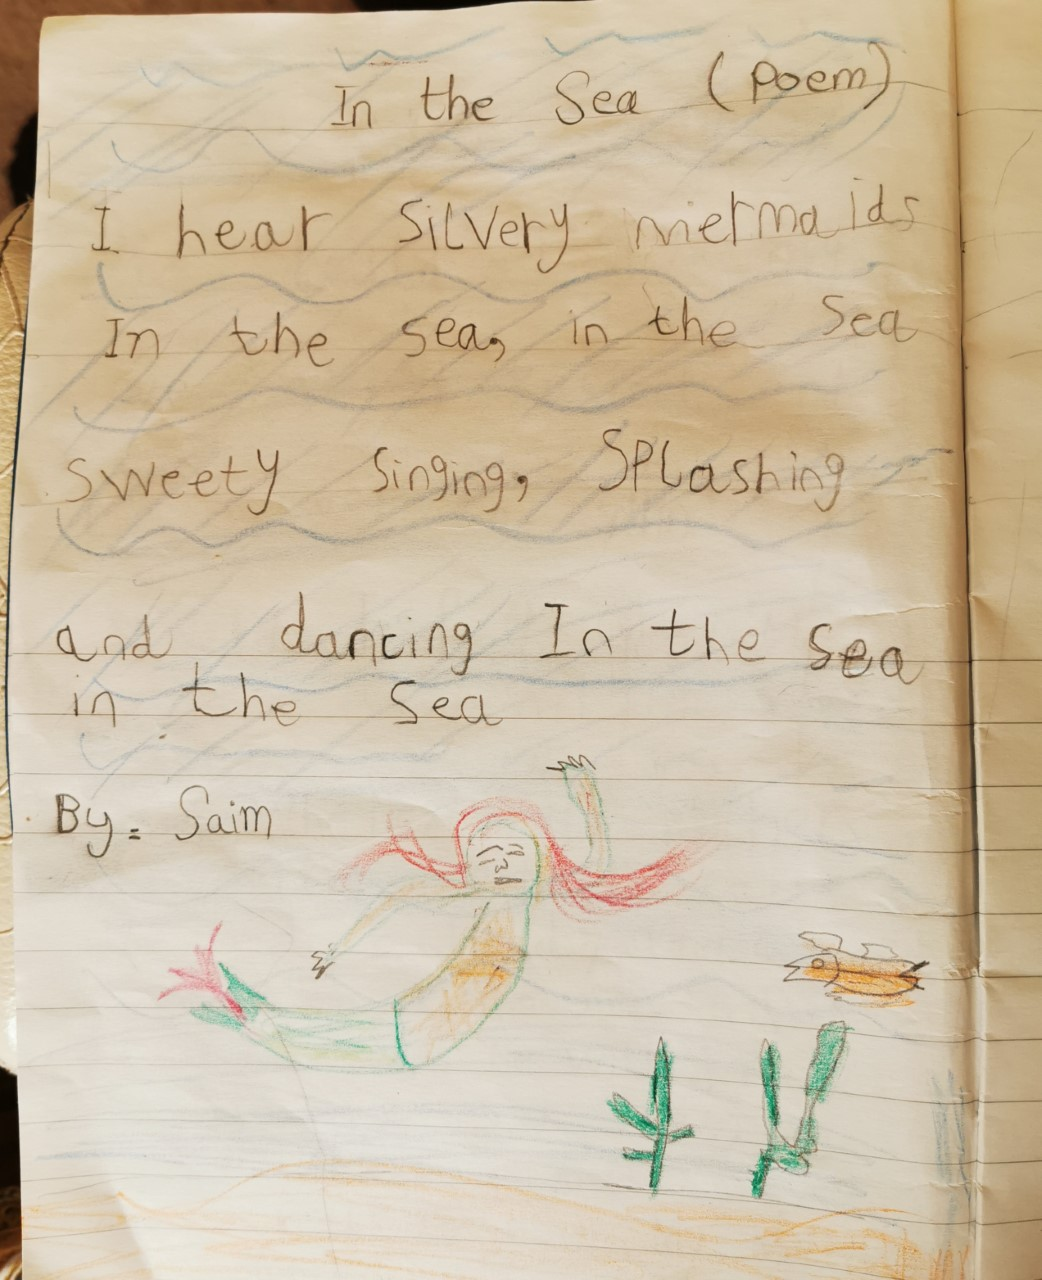 In the Sea (Poem)
I hear Silvery mermaids
In the sea, in the Sea
Sweety Singing, Splashing
and dancing In the sea
in the Sea
By = Saim